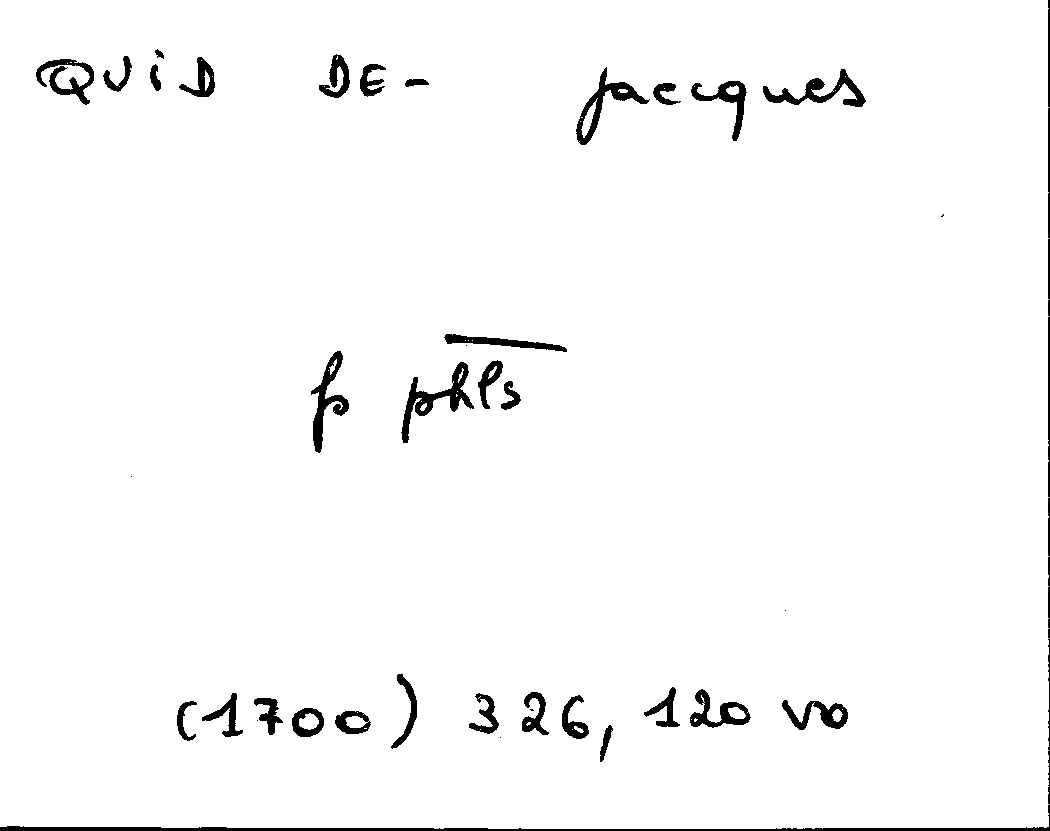 QUiD DE- jaccques
fs phls
(1700) 326, 120 vo